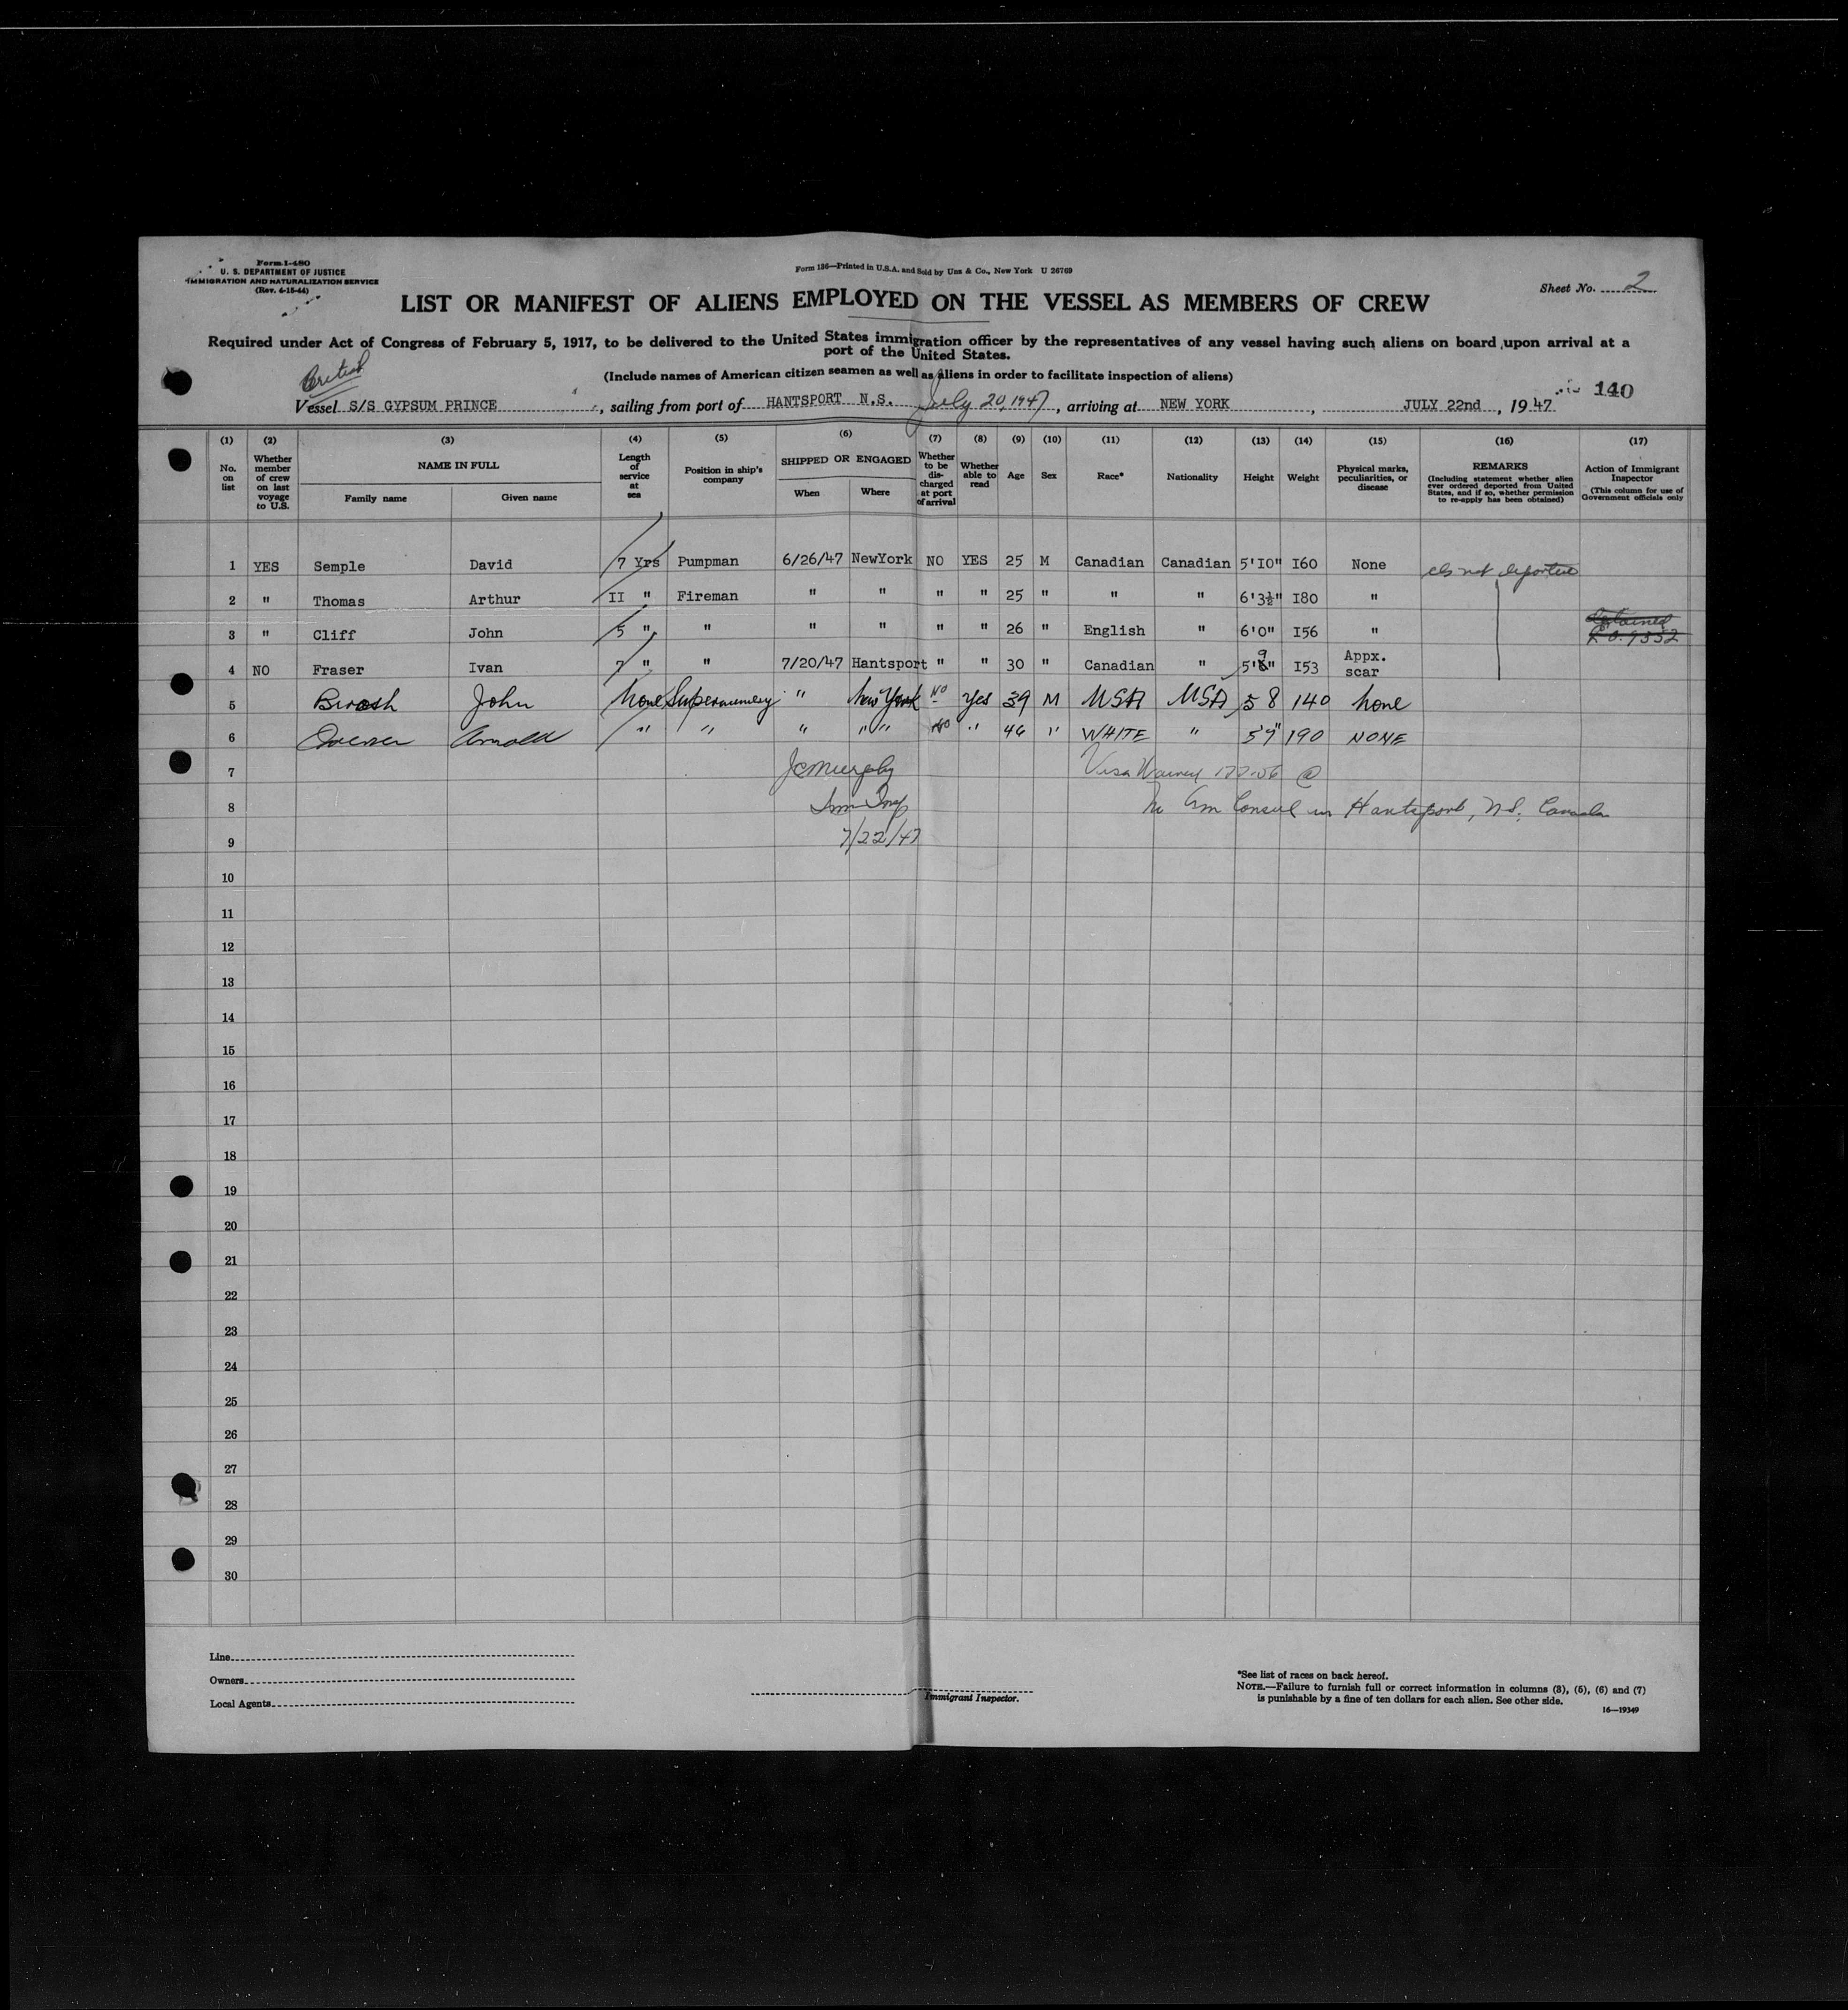 Form I-480
U. S. DEPARTMENT OF JUSTICE
IMMIGRATION AND NATURALIZATION SERVICE
(Rev. 6-15-44)
Form 136—Printed in U.S.A. and Sold by Unz & Co., New York U 26769
Sheet No. 2
LIST OR MANIFEST OF ALIENS EMPLOYED ON THE VESSEL AS MEMBERS OF CREW
Required under Act of Congress of February 5, 1917, to be delivered to the United States immigration officer by the representatives of any vessel having such aliens on board upon arrival at a
port of the United States.
(Include names of American citizen seamen as well as aliens in order to facilitate inspection of aliens)
British
140
Vessel S/S GYPSUM PRINCE, sailing from port of HANTSPORT N.S. July 20, 1947, arriving at NEW YORK, JULY 22nd, 1947
(1) (2) (3) (4) (5) (6) (7) (8) (9) (10) (11) (12) (13) (14) (15) (16) (17)
No. on list
Whether member of crew on last voyage to U.S.
NAME IN FULL
Family name
Given name
Length of service at sea
Position in ship's company
SHIPPED OR ENGAGED
When
Where
Whether to be discharged at port of arrival
Whether able to read
Age
Sex
Race*
Nationality
Height
Weight
Physical marks, peculiarities, or disease
REMARKS
(Including statement whether alien ever ordered deported from United States, and if so, whether permission to re-apply has been obtained)
Action of Immigrant Inspector
(This column for use of Government officials only
1 YES Semple David 7 Yrs Pumpman 6/26/47 NewYork NO YES 25 M Canadian Canadian 5'I0" I60 None not deported
2 " Thomas Arthur II " Fireman " " " " 25 " " " 6'3½" I80 "
3 " Cliff John 5 " " " " " " 26 " English " 6'0" I56 " Detained
4 NO Fraser Ivan 7 " " 7/20/47 Hantsport " " 30 " Canadian " 5'9" I53 Appx. scar
5 Brosh John None Supernumery " New York No Yes 39 M USA USA 5 8 140 None
6 Arnold " " " " " No " 46 " WHITE " 5'9" 190 NONE
7 JC Murphy Visa Waived @
8 Imm Insp No Am Consul in Hantsport, N.S. Canada
9 7/22/47
10
11
12
13
14
15
16
17
18
19
20
21
22
23
24
25
26
27
28
29
30
Line
Owners
Local Agents
Immigrant Inspector.
*See list of races on back hereof.
NOTE.—Failure to furnish full or correct information in columns (3), (5), (6) and (7)
is punishable by a fine of ten dollars for each alien. See other side.
16—19349